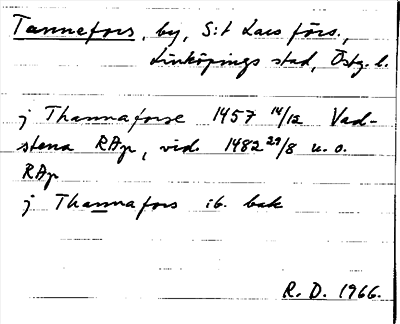 Tannefors, by, S:t Lars förs.,
Linköpings stad, Östg. l.
j Thannaforse 1457 14/12 Vad-
stena RAp, vid. 1482 29/8 u.o.
RAp
j Thannafors ib. bak
R. D. 1966.